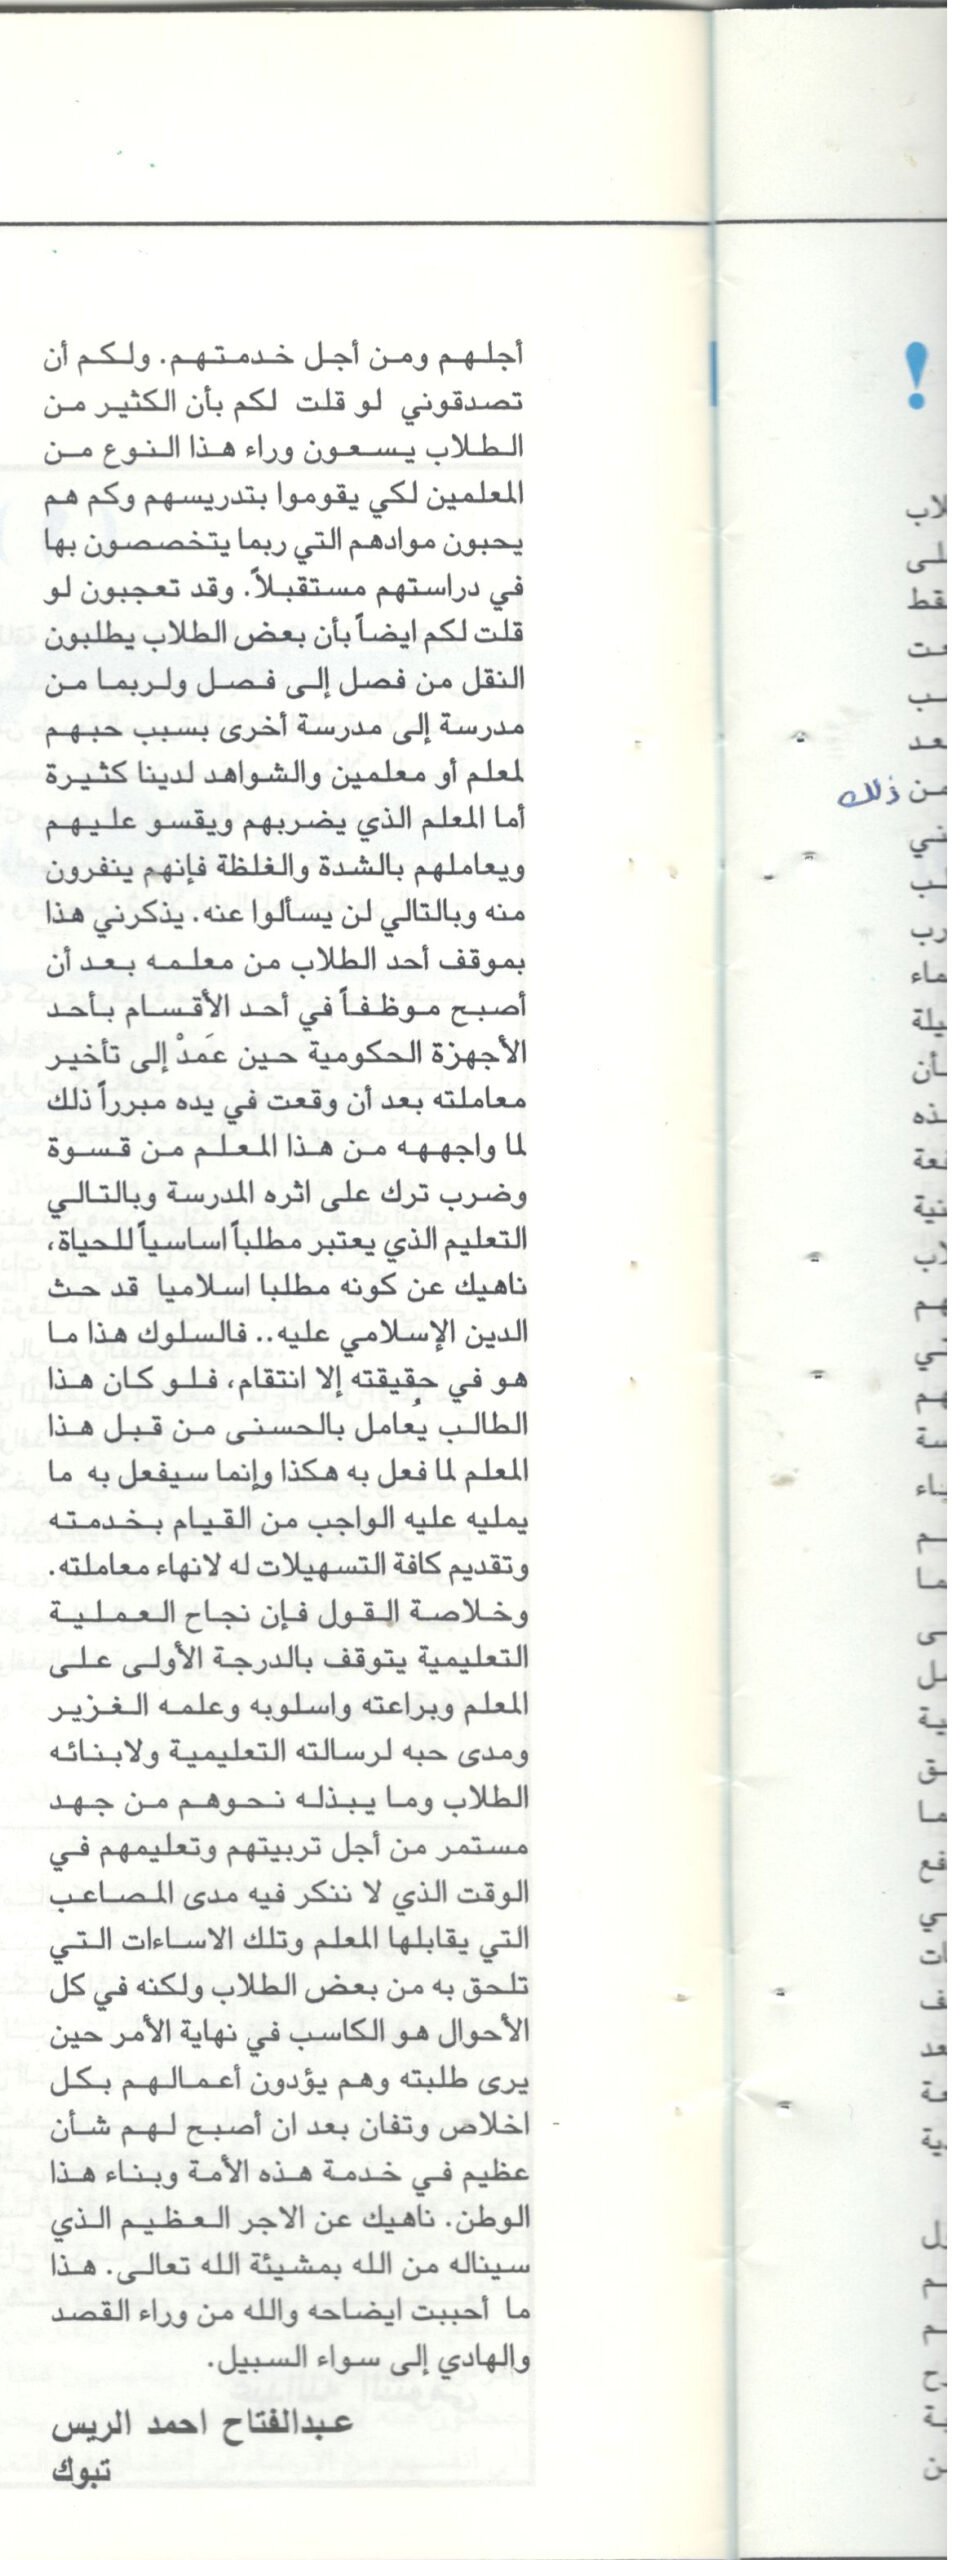 أجلهم ومن أجل خدمتهم. ولكم أن
تصدقوني لو قلت لكم بأن الكثير من
الطلاب يسعون وراء هذا النوع من
المعلمين لكي يقوموا بتدريسهم وكم هم
يحبون موادهم التي ربما يتخصصون بها
في دراستهم مستقبلاً. وقد تعجبون لو
قلت لكم ايضاً بأن بعض الطلاب يطلبون
النقل من فصل إلى فصل ولربما من
مدرسة إلى مدرسة أخرى بسبب حبهم
لمعلم أو معلمين والشواهد لدينا كثيرة
أما المعلم الذي يضربهم ويقسو عليهم
ويعاملهم بالشدة والغلظة فإنهم ينفرون
منه وبالتالي لن يسألوا عنه. يذكرني هذا
بموقف أحد الطلاب من معلمه بعد أن
أصبح موظفاً في أحد الأقسام بأحد
الأجهزة الحكومية حين عَمدْ إلى تأخير
معاملته بعد أن وقعت في يده مبرراً ذلك
لما واجههه من هذا المعلم من قسوة
وضرب ترك على اثره المدرسة وبالتالي
التعليم الذي يعتبر مطلباً اساسياً للحياة،
ناهيك عن كونه مطلبا اسلاميا قد حث
الدين الإسلامي عليه.. فالسلوك هذا ما
هو في حقيقته إلا انتقام، فلو كان هذا
الطالب يُعامل بالحسنى من قبل هذا
المعلم لما فعل به هكذا وإنما سيفعل به ما
يمليه عليه الواجب من القيام بخدمته
وتقديم كافة التسهيلات له لانهاء معاملته.
وخلاصة القول فإن نجاح العملية
التعليمية يتوقف بالدرجة الأولى على
المعلم وبراعته واسلوبه وعلمه الغزير
ومدى حبه لرسالته التعليمية ولابنائه
الطلاب وما يبذله نحوهم من جهد
مستمر من أجل تربيتهم وتعليمهم في
الوقت الذي لا ننكر فيه مدى المصاعب
التي يقابلها المعلم وتلك الاساءات التي
تلحق به من بعض الطلاب ولكنه في كل
الأحوال هو الكاسب في نهاية الأمر حين
يرى طلبته وهم يؤدون أعمالهم بكل
اخلاص وتفان بعد ان أصبح لهم شأن
عظيم في خدمة هذه الأمة وبناء هذا
الوطن. ناهيك عن الاجر العظيم الذي
سيناله من الله بمشيئة الله تعالى. هذا
ما أحببت ايضاحه والله من وراء القصد
والهادي إلى سواء السبيل.
عبدالفتاح احمد الريس
تبوك
!
من ذلك